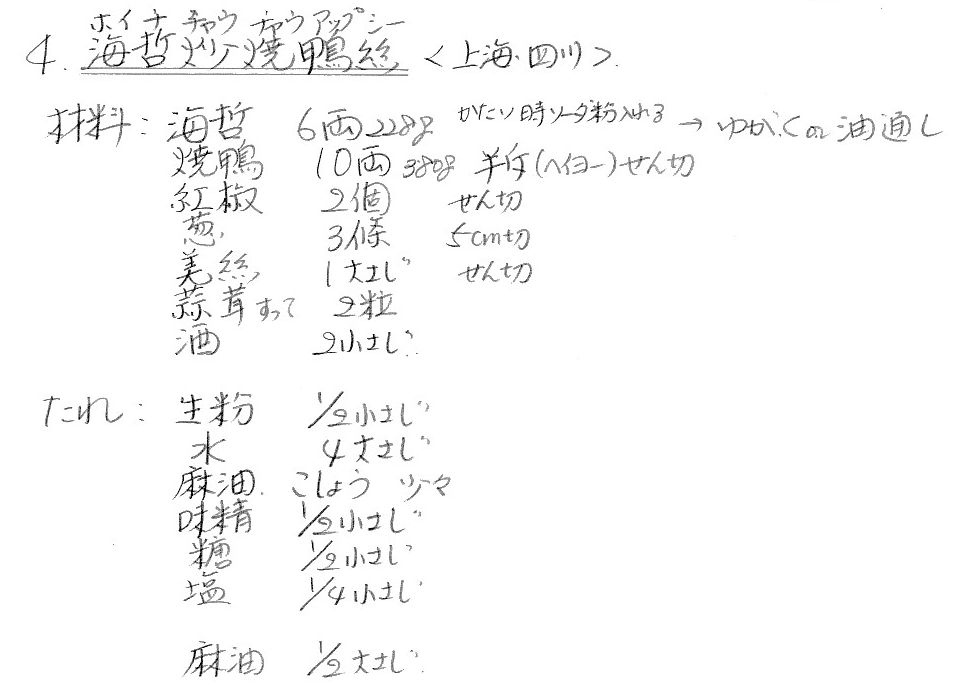 ホイナ チャウ チャウアップシー
4. 海哲炒焼鴨絲 <上海・四川>
材料: 海哲 6両228g かたい時ソーダ粉入れる → ゆがくor油通し
焼鴨 10両380g 半斤(ヘイヨー)せん切
紅椒 2個 せん切
葱 3條 5cm切
姜絲 1大さじ せん切
蒜茸すって 2粒
酒 2小さじ
たれ: 生粉 1/2小さじ
水 4大さじ
麻油. こしょう 少々
味精 1/2小さじ
糖 1/2小さじ
塩 1/4小さじ
麻油 1/2大さじ